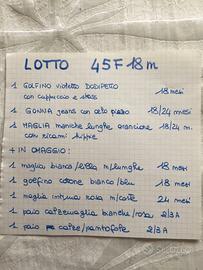 LOTTO 45F 18 m
1 GOLFINO violetto DODIPETTO
con cappuccio e strass 18 mesi
1 GONNA jeans con orlo pizzo 18/24 mesi
1 MAGLIA maniche lunghe arancione 18/24 m.
con ricami hippie
+ IN OMAGGIO:
1 maglia bianca/ m/lunghe 18 mesi
1 golfino cotone bianco/blu 18 mesi
1 maglia intima rosa m/corte 24 mesi
1 paio calzamaglia bianche/rosa 2/3A
1 paio calze/pantofole 2/3A
Subito